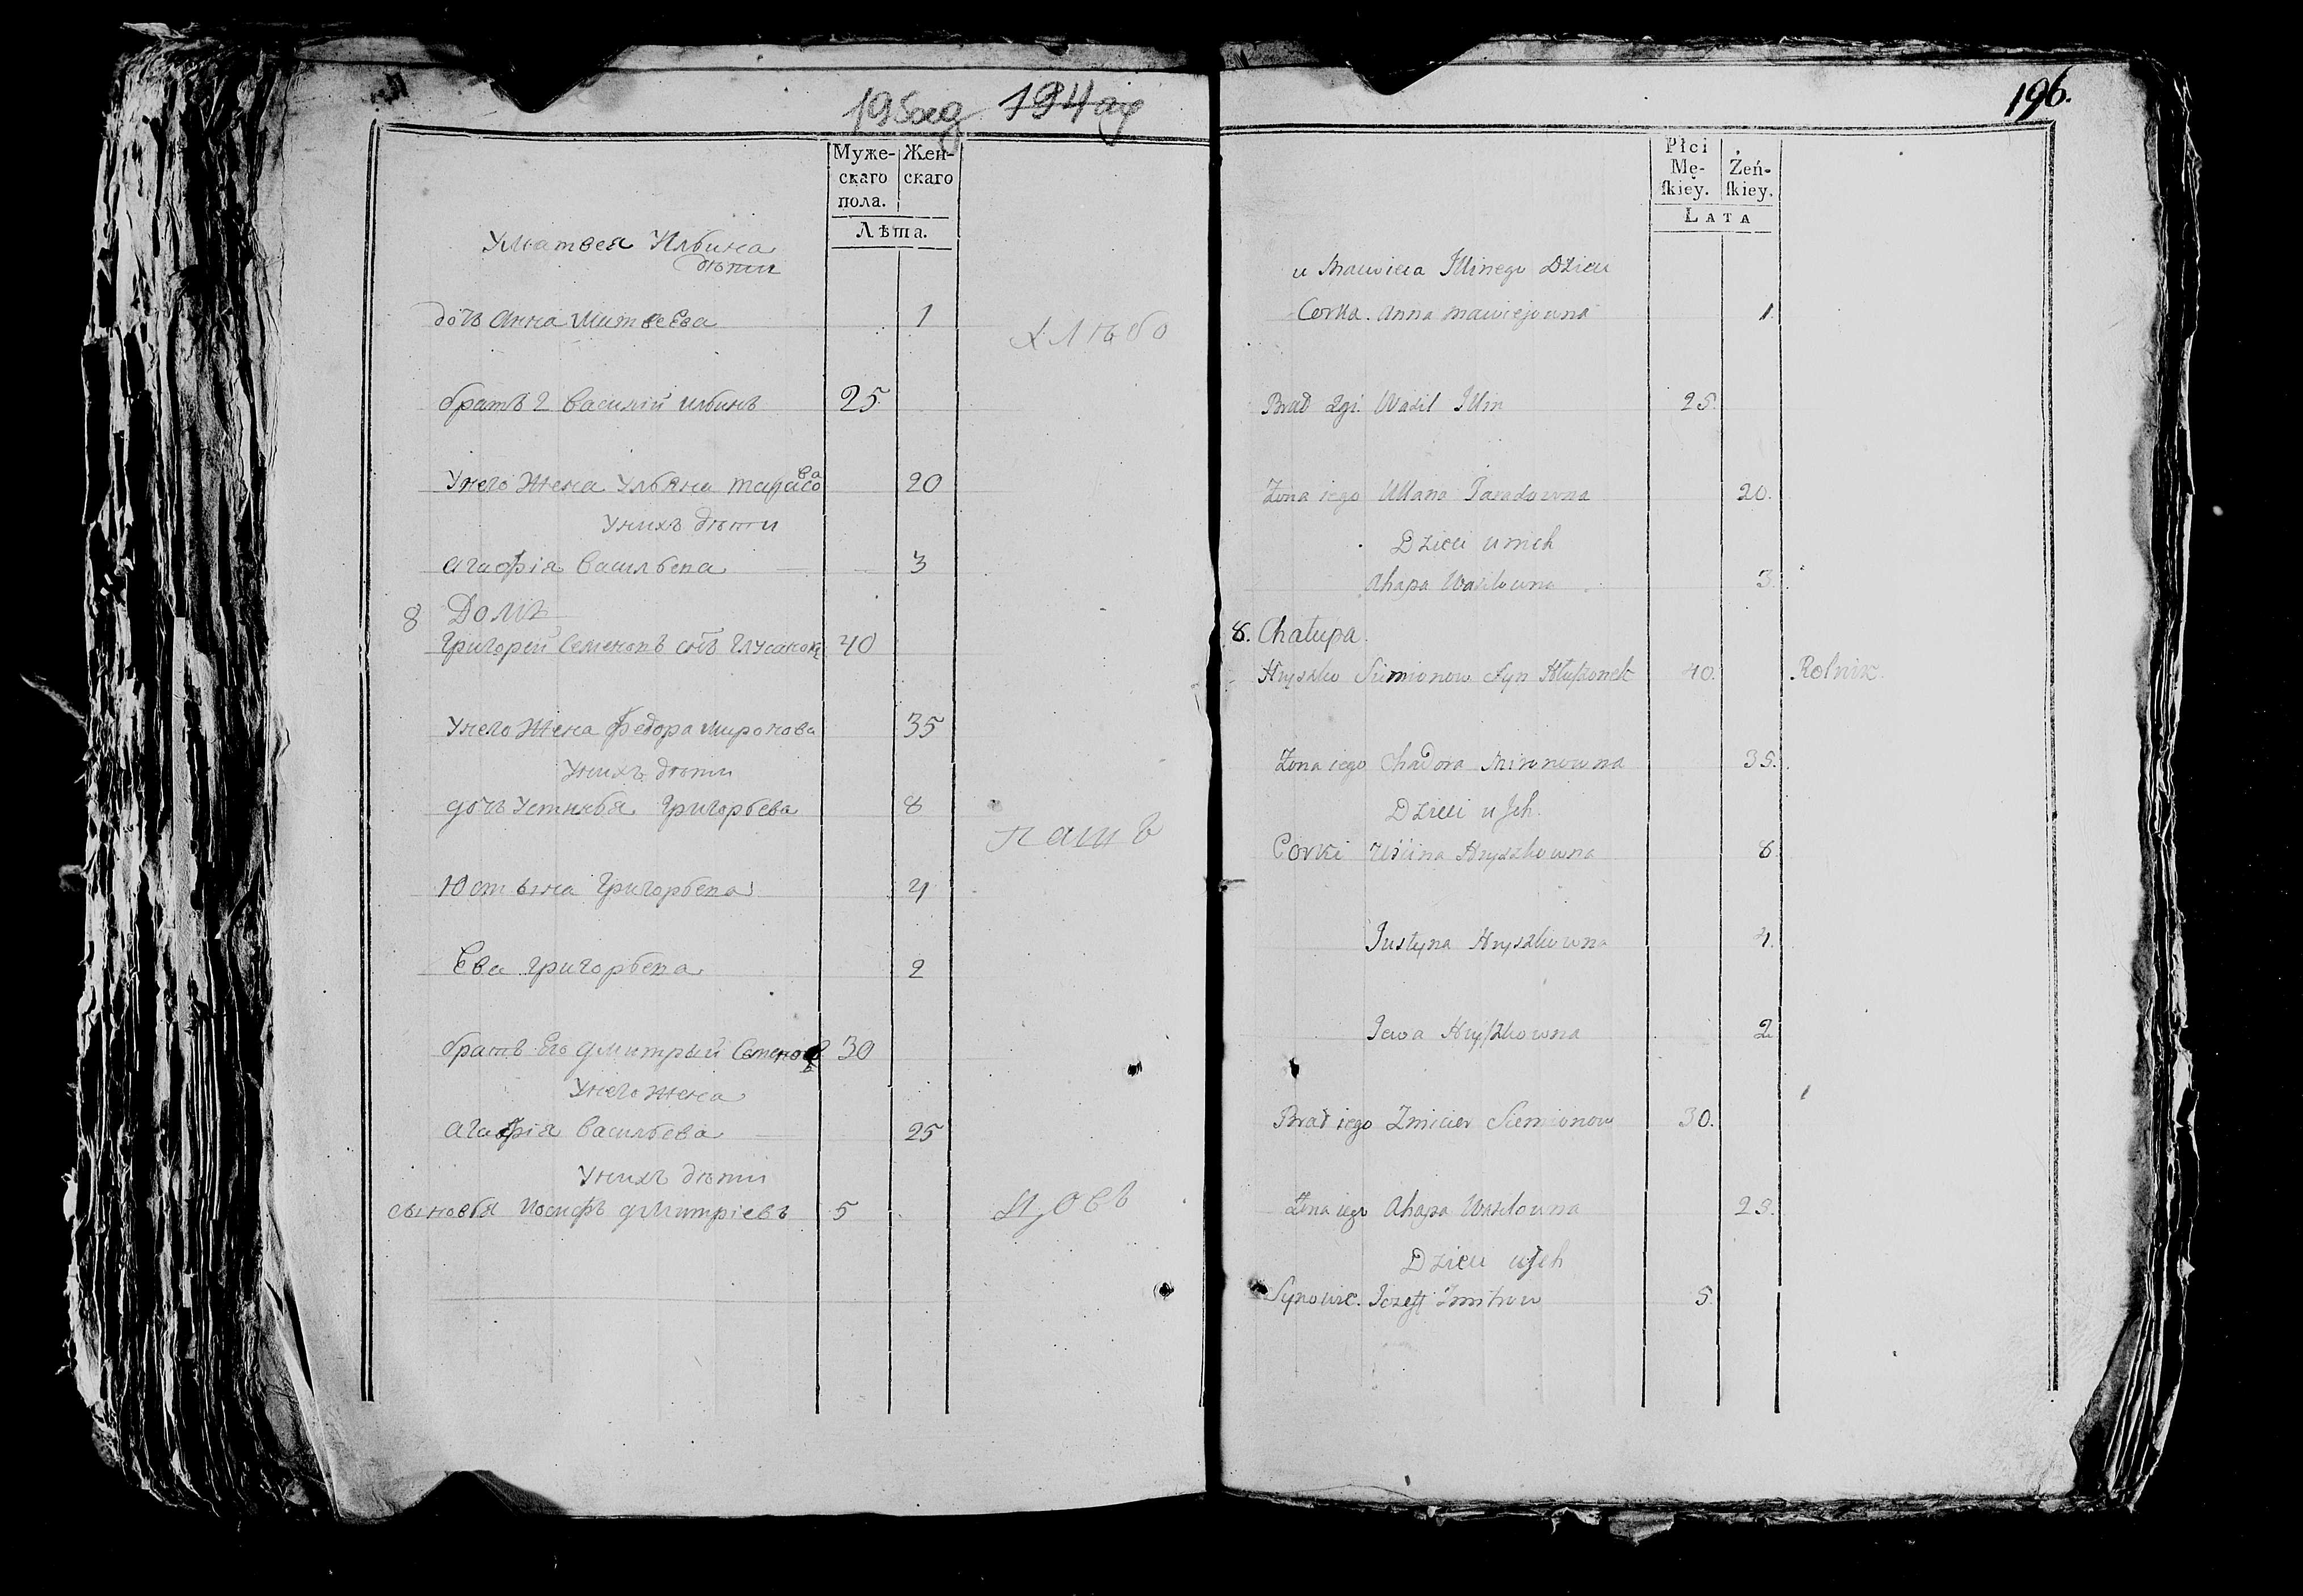 194
Муже-
скаго
пола.
Жен-
скаго
Лѣта.
У Матвея Ильина
дѣти
дочь Анна Матвеева 1
хлѣбо
братъ 2 Василий Ильинъ 25
У него Жена Ульяна Тарасова 20
У нихъ дѣти
Агафія Васильева 3
8 Домъ
Григорей Семеновъ сынъ 40
У него Жена Федора Миронова 35
У нихъ дѣти
дочь Устинья Григорьева 8
пашъ
Юстына Григорьева 4
Ева Григорьева 2
братъ Его Дмитрый Семенов 30
У него Жена
Агафія Васильева 25
У нихъ дѣти
сыновья Иосифъ Дмитріевъ 5
цовъ
196.
Płci
Mę-
ſkiey.
Żeń-
ſkiey.
LATA
u Macwieia Illinego Dzieci
Corka. Anna Maciejowna 1.
Brat 2gi. Wasil Illin 25.
Zona iego Ullana Tarasowna 20.
Dzieci u nich
Ahapa Wasilowna 3.
8. Chałupa.
Hryszko Siemionow Syn 40. Rolnik.
Zona iego Chadora Mironowna 35.
Dzieci u Jch.
Corki Uścina Hryszkowna 8
Justyna Hryszkowna 4.
Jewa Hryſzkowna 2
Brat iego Zmicier Siemionow 30.
Zona iego Ahapa Wasilowna 25.
Dzieci u Jch
Synowie. Jozeff Zmitrow 5.